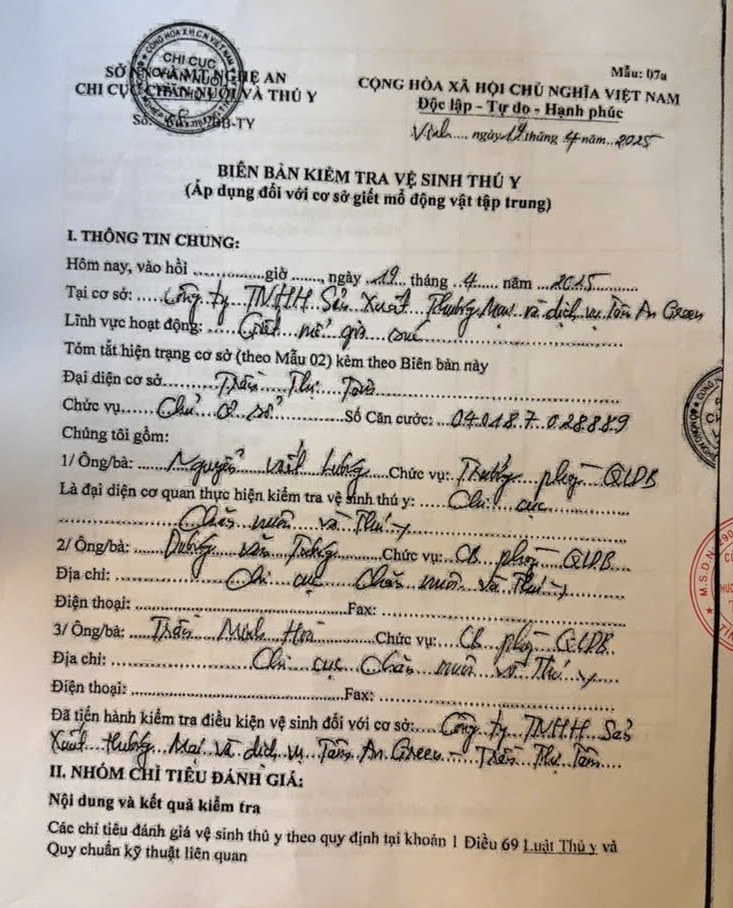 Mẫu: 07a
SỞ NN VÀ MT NGHỆ AN
CHI CỤC CHĂN NUÔI VÀ THÚ Y
CHI CỤC
CỘNG HÒA XÃ HỘI CHỦ NGHĨA VIỆT NAM
Độc lập - Tự do - Hạnh phúc
Số: /BB-TY
Vinh, ngày 19 tháng 4 năm 2025
BIÊN BẢN KIỂM TRA VỆ SINH THÚ Y
(Áp dụng đối với cơ sở giết mổ động vật tập trung)
I. THÔNG TIN CHUNG:
Hôm nay, vào hồi ............giờ ......., ngày 19 tháng 4 năm 2025
Tại cơ sở: Công ty TNHH Sản Xuất Thương Mại và dịch vụ Tâm An Green
Lĩnh vực hoạt động: Giết mổ gia súc
Tóm tắt hiện trạng cơ sở (theo Mẫu 02) kèm theo Biên bản này
Đại diện cơ sở Trần Thị Tâm
Chức vụ Chủ cơ sở Số Căn cước: 040187028889
Chúng tôi gồm:
1/ Ông/bà: Nguyễn Viết Lương Chức vụ: Trưởng phòng QLDB
Là đại diện cơ quan thực hiện kiểm tra vệ sinh thú y: Chi cục
Chăn nuôi và Thú y
2/ Ông/bà: Dương Văn Chức vụ: CB phòng QLDB
Địa chỉ: Chi cục Chăn nuôi và Thú y
Điện thoại: Fax:
3/ Ông/bà: Trần Minh Hoà Chức vụ: CB phòng QLDB
Địa chỉ: Chi cục Chăn nuôi và Thú y
Điện thoại: Fax:
Đã tiến hành kiểm tra điều kiện vệ sinh đối với cơ sở: Công ty TNHH Sản
Xuất thương Mại và dịch vụ Tâm An Green - Trần Thị Tâm
II. NHÓM CHỈ TIÊU ĐÁNH GIÁ:
Nội dung và kết quả kiểm tra
Các chỉ tiêu đánh giá vệ sinh thú y theo quy định tại khoản 1 Điều 69 Luật Thú y và
Quy chuẩn kỹ thuật liên quan